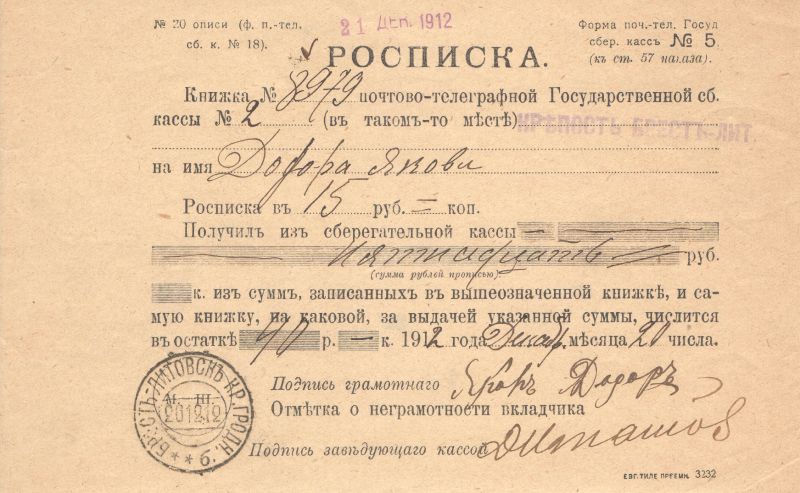 № 20 описи (ф. п.-тел.
сб. к. № 18).
21 ДЕК. 1912
Форма поч.-тел. Госуд
сбер. кассъ № 5.
(къ ст. 57 наказа).
РОСПИСКА.
Книжка № 8979 почтово-телеграфной Государственной сб.
кассы № 2 (въ такомъ-то мѣстѣ) КРѢПОСТЬ БРЕСТЪ-ЛИТ.
на имя Додора Якова
Росписка въ 15 руб. = коп.
Получилъ изъ сберегательной кассы
пятнадцать руб.
(сумма рублей прописью)
к. изъ суммъ, записанныхъ въ вышеозначенной книжкѣ, и са-
мую книжку, на каковой, за выдачей указанной суммы, числится
въ остаткѣ 40 р. — к. 1912 года Декабр. мѣсяца 20 числа.
Подпись грамотнаго Яковъ Додоръ
Отмѣтка о неграмотности вкладчика
Подпись завѣдующаго кассой
БРЕСТЪ-ЛИТОВСКЪ КР. ГРОДН. * * б.
20 12 12
ЕВГ. ТИЛЕ ПРЕЕМН. 3232